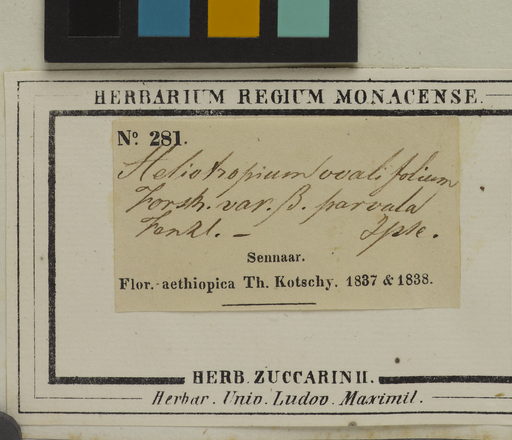 HERBARIUM REGIUM MONACENSE.
Nº. 281.
Heliotropium ovalifolium
Forsk. var. β. parvula
Fenzl. –
Sennaar.
Flor. aethiopica Th. Kotschy. 1837 & 1838.
HERB. ZUCCARINII.
Herbar. Univ. Ludov. Maximil.